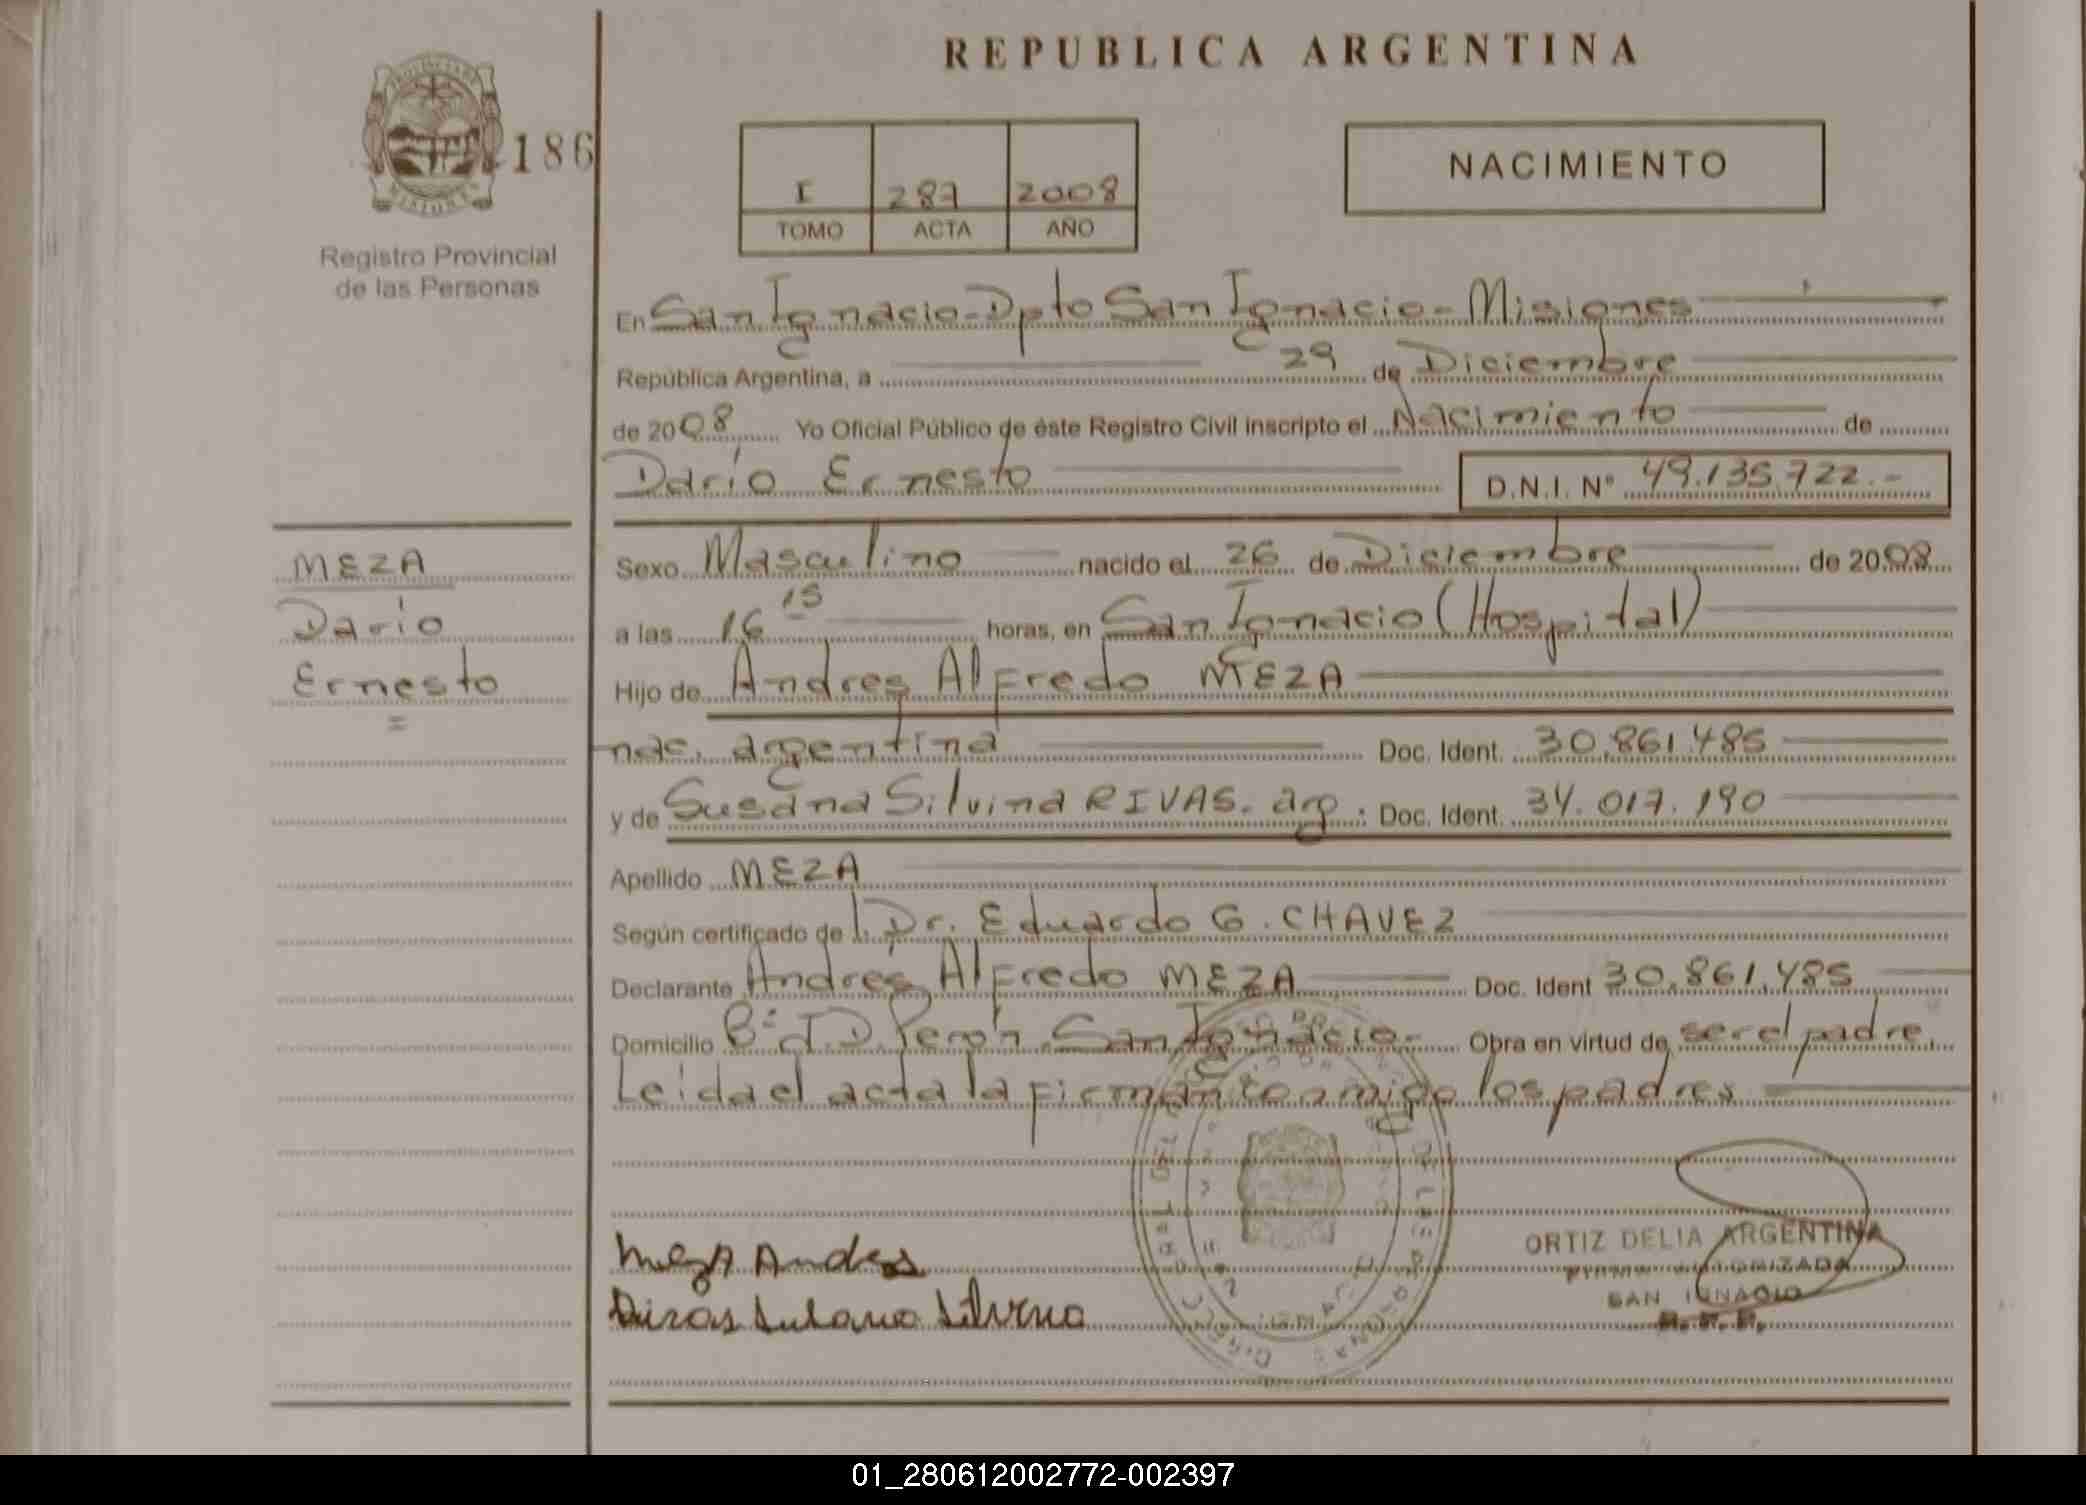 REPUBLICA ARGENTINA
186
NACIMIENTO
I 287 2008
TOMO ACTA AÑO
Registro Provincial
de las Personas
En San Ignacio - Dpto San Ignacio - Misiones
República Argentina, a 29 de Diciembre
de 2008 Yo Oficial Público de éste Registro Civil inscripto el Nacimiento de
Darío Ernesto D.N.I. Nº 49.135.722.-
MEZA
Darío
Ernesto
Sexo Masculino nacido el 26 de Diciembre de 2008
a las 16 15 horas, en San Ignacio (Hospital)
Hijo de Andres Alfredo MEZA
nac. argentina Doc. Ident. 30.861.485
y de Susana Silvina RIVAS. arg. Doc. Ident. 34.017.190
Apellido MEZA
Según certificado de Dr. Eduardo G. CHAVEZ
Declarante Andrés Alfredo MEZA Doc. Ident 30.861.485
Domicilio Bº J.D. Perón San Ignacio.- Obra en virtud de ser el padre.
Leida el acta la firman conmigo los padres
Meza Andres
ORTIZ DELIA ARGENTINA
FIRMA AUTORIZADA
SAN IGNACIO
R. P. P.
01_280612002772-002397